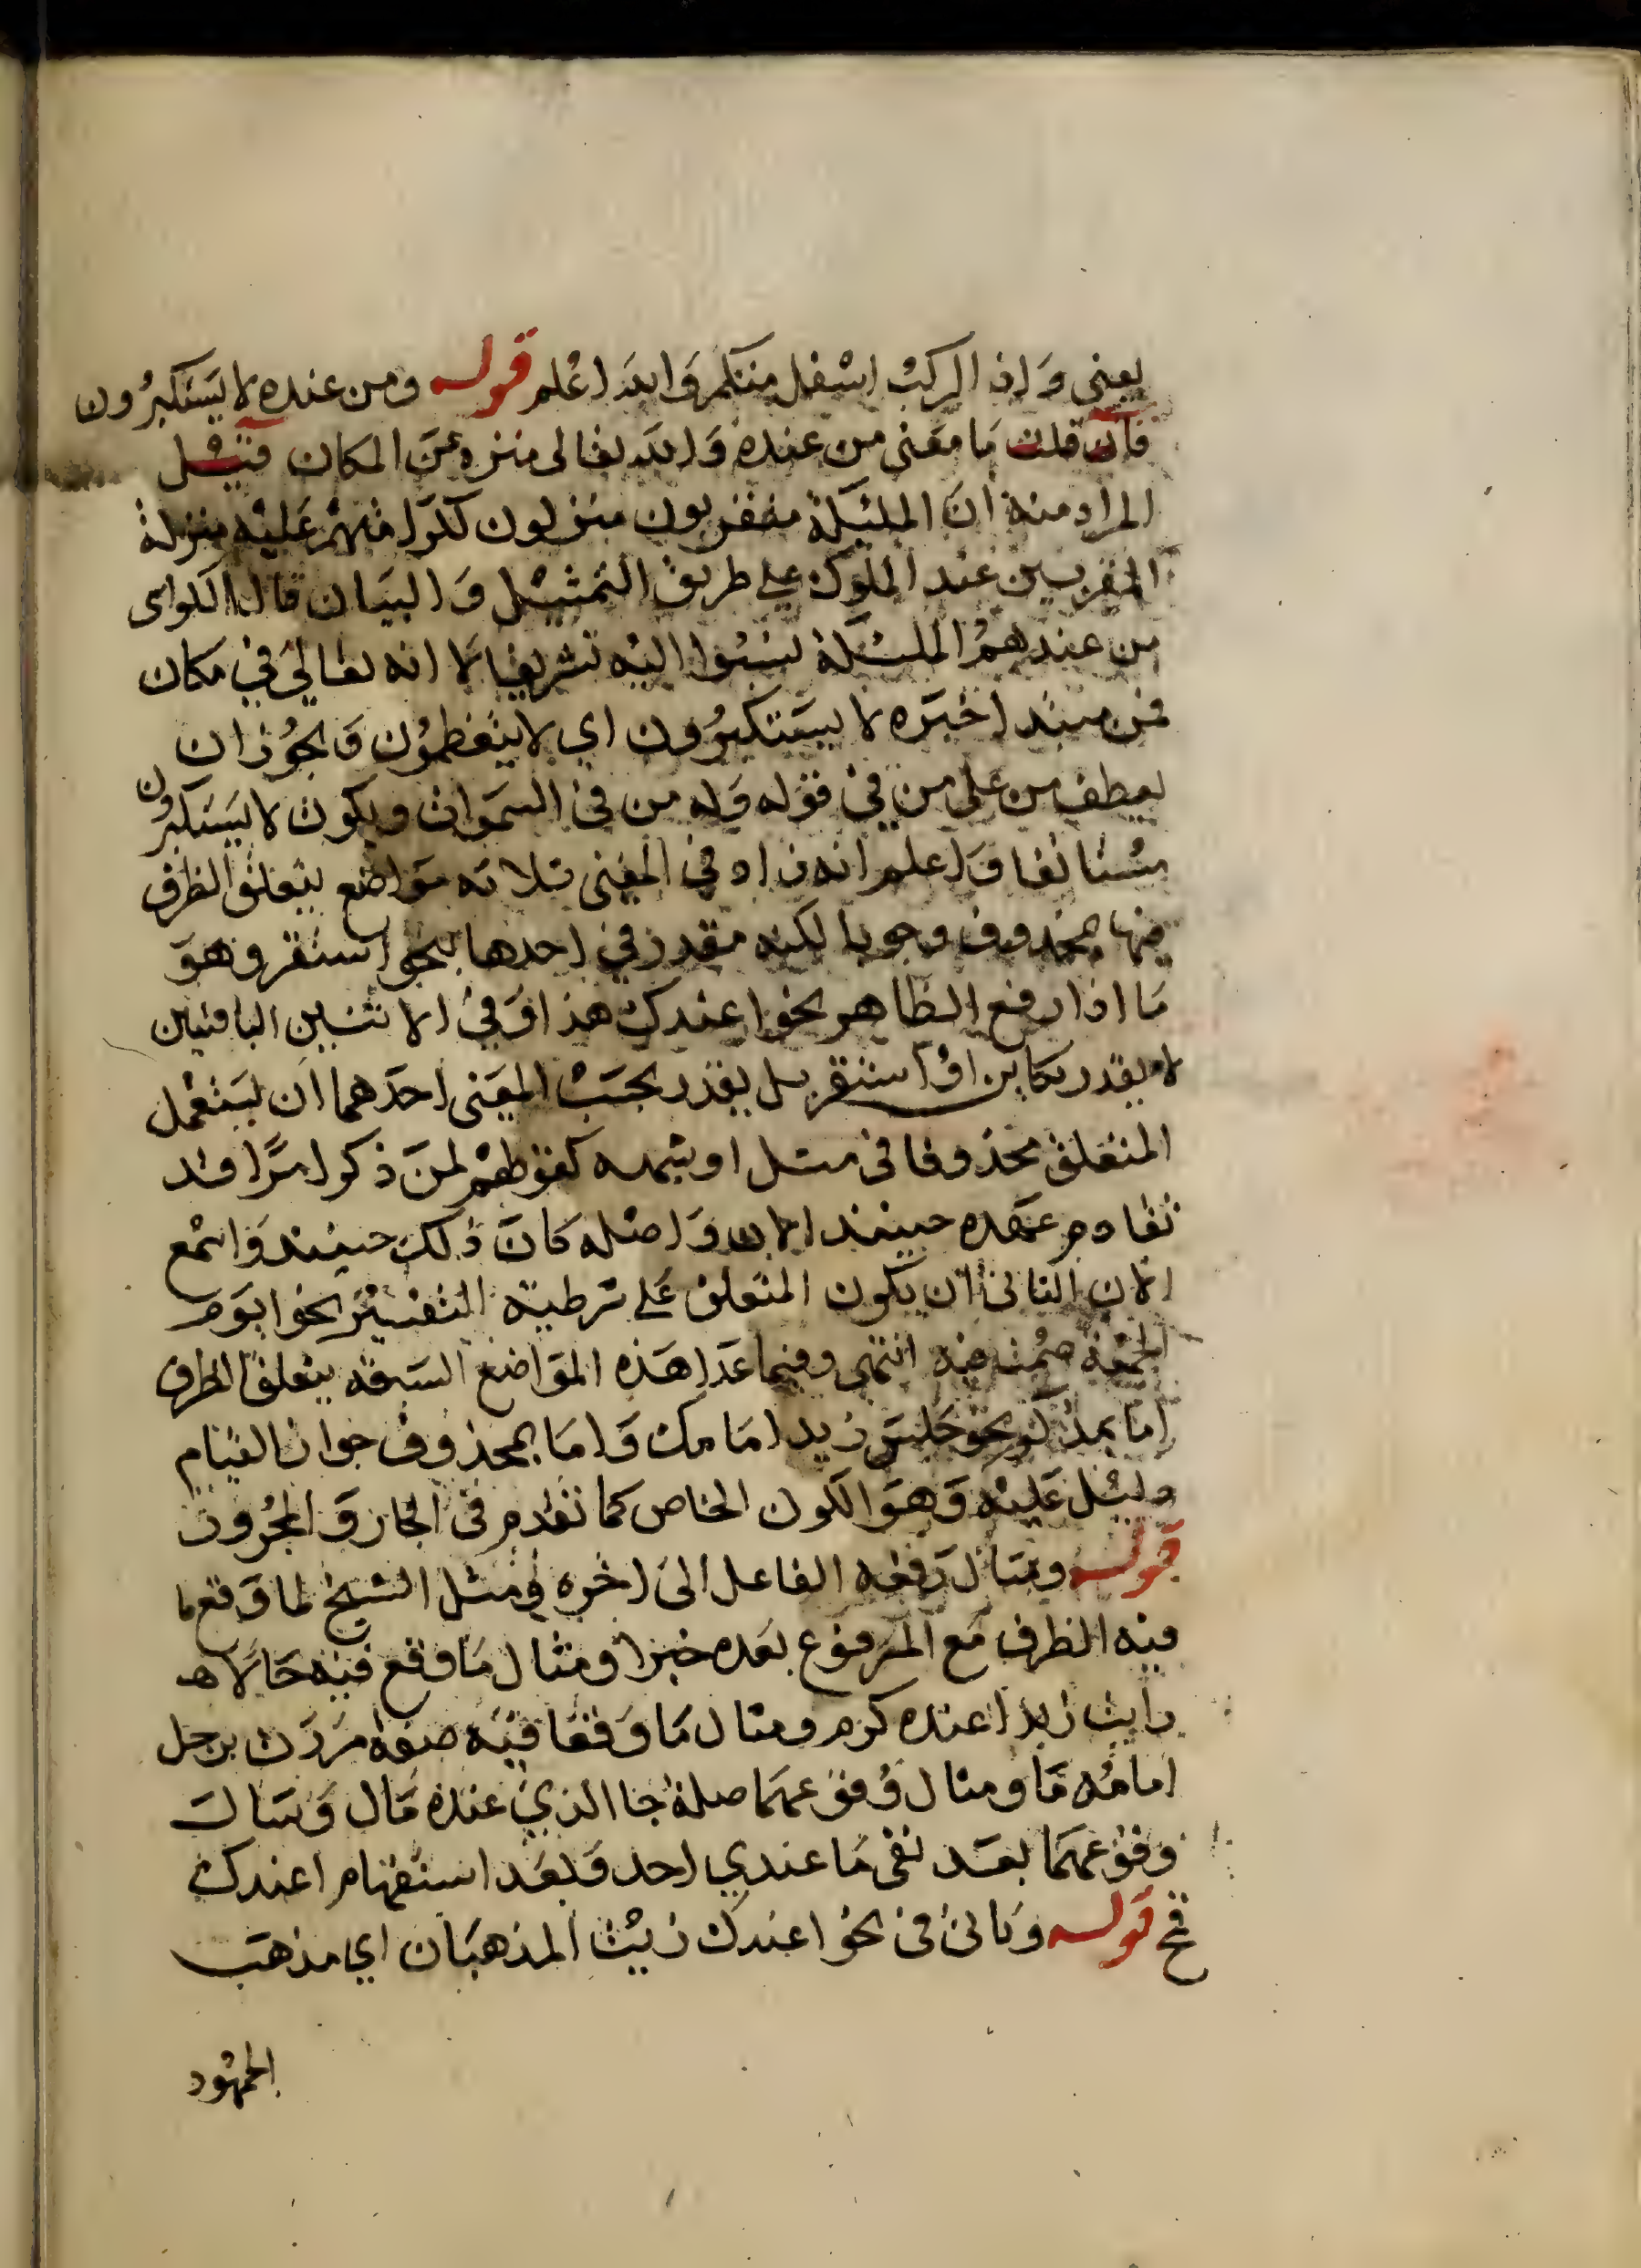 يعني واذ الركب اسفل منكم والله اعلم قوله ومن عنده لا يستكبرون
فان قلت ما معنى من عنده والله تعالى منزه عن المكان قيل
المراد منه ان المليكة مقربون منزلون لكرامتهم عليه منزلة
المقربين عند الملوك على طريق التمثيل والبيان قال الكواى
من عندهم المليكة نسبوا اليه تشريفا لا انه تعالى في مكان
فمن مبتدا خبره لا يستكبرون اي لا يتعظمون ويجوز ان
يعطف من على من في قوله وله من في السموات ويكون لا يستكبرون
مستانفا واعلم انه زاد في المغني ثلاثة مواضع يتعلق الظرف
فيها بمحذوف وجوبا لكنه مقدر في احدها بنحو استقر وهو
ما اذا رفع الظاهر نحو اعندك هذا وفي الاثنين الباقيين
لا يقدر بكاين او استقر بل يقدر بحسب المعنى احدهما ان يستعمل
المتعلق محذوفا في مثل او شبهه كقولهم لمن ذكر امرا قد
تقادم عهده حينئذ الان واصله كان ذلك حينئذ واسمع
الان الثاني ان يكون المتعلق على شرطية التفسير نحو ايوم
الجمعة صمت فيه انتهى وفيما عدا هذه المواضع السبعة يتعلق الظرف
اما بمذكور نحو جلس زيد امامك واما بمحذوف جوازا لقيام
دليل عليه وهو الكون الخاص كما تقدم في الجار والمجرور
قوله ومثال رفعه الفاعل الى اخره مثل الشيخ لما وقع
فيه الظرف مع المرفوع بعده خبرا ومثال ما وقع فيه حالا
رايت زيدا عنده كرم ومثال ما وقعا فيه صفة مررت برجل
امامه ما ومثال وقوعهما صلة جا الذي عنده مال ومثال
وقوعهما بعد نفي ما عندي احد وبعد استفهام اعندك
قوله وياتي في نحو اعندك زيت المذهبان اي مذهب
الجمهور